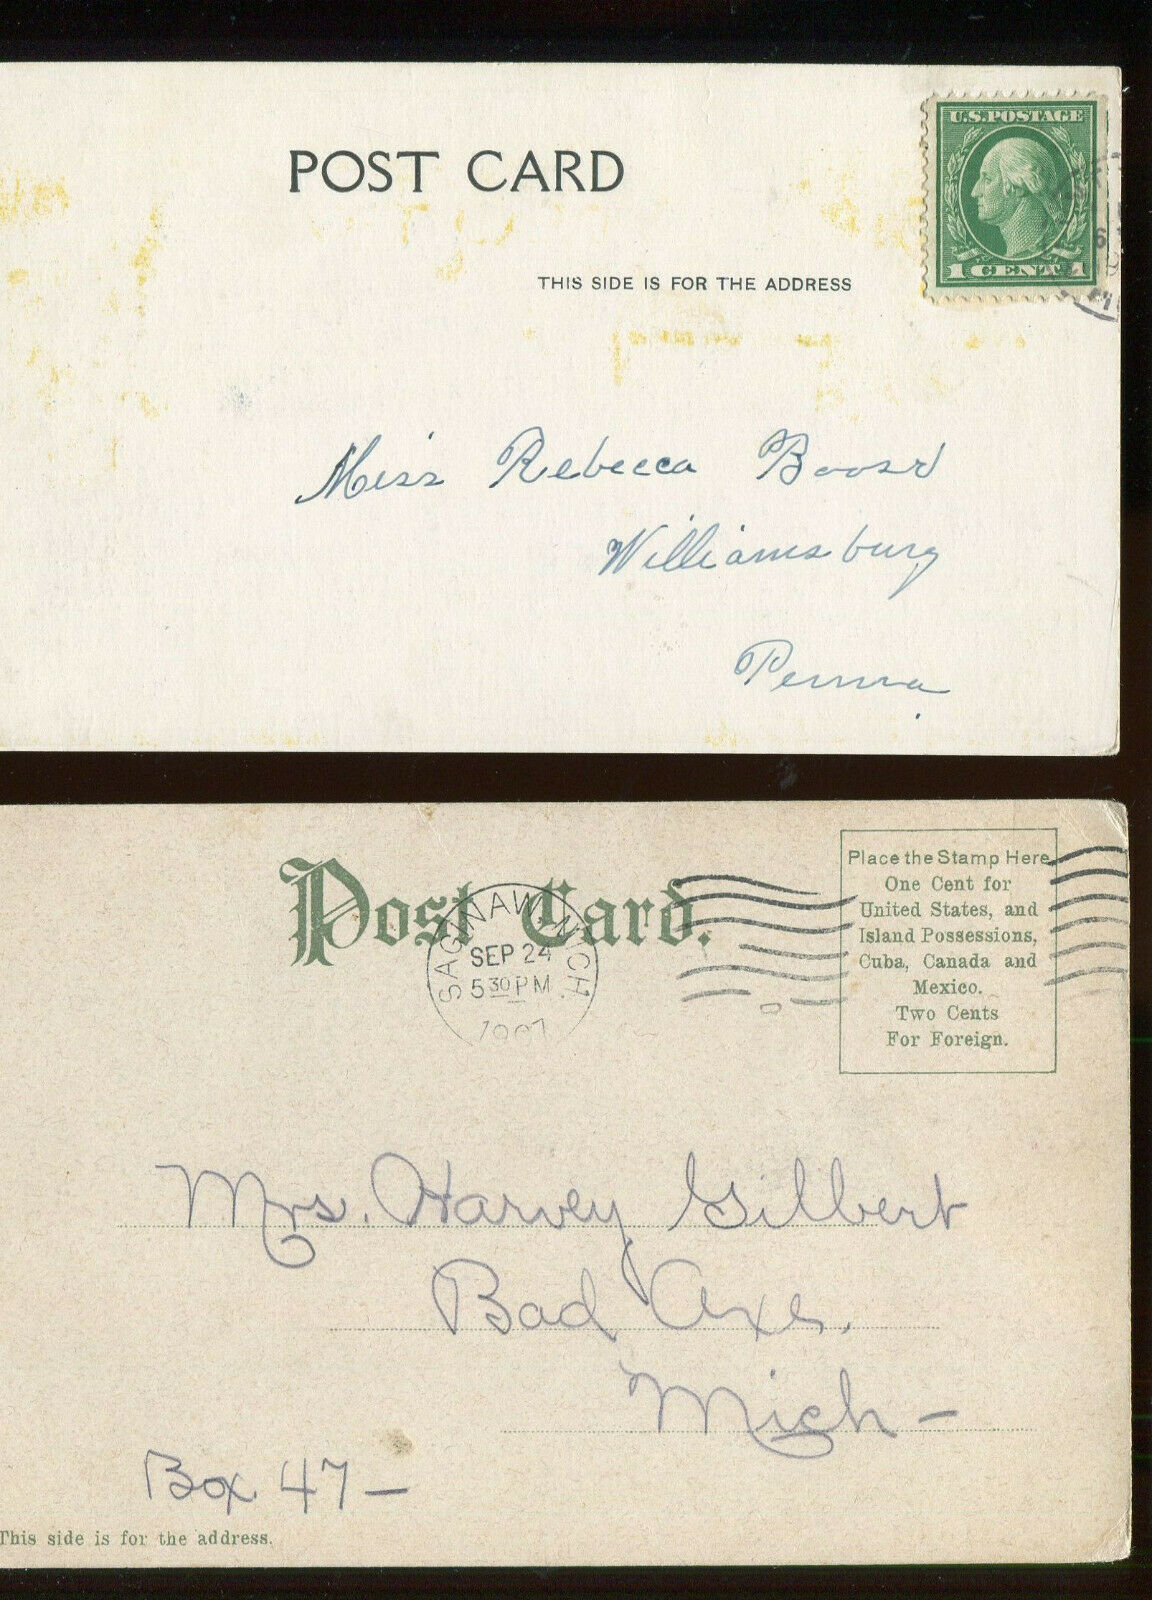 POST CARD
U.S. POSTAGE
1 CENT 1
THIS SIDE IS FOR THE ADDRESS
Miss Rebecca Boosr
Williamsburg
Penna.
Post Card.
SAGINAW, MICH.
SEP 24
5 30 PM
1907
Place the Stamp Here
One Cent for
United States, and
Island Possessions,
Cuba, Canada and
Mexico.
Two Cents
For Foreign.
Mrs. Harvey Gilbert
Bad Axe.
Mich -
Box 47 -
This side is for the address.